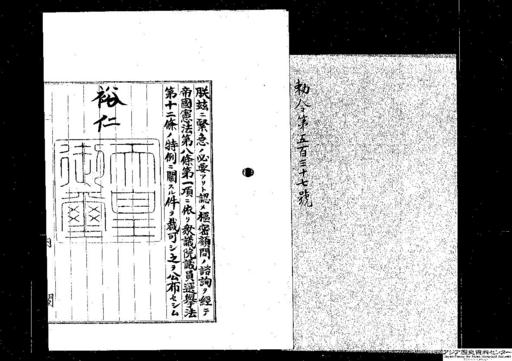 勅令第五百三十七號
朕玆ニ緊急ノ必要アリト認メ樞密顧問ノ諮詢ヲ經テ
帝國憲法第八條第一項ニ依リ衆議院議員選擧法
第十二條ノ特例ニ關スル件ヲ裁可シ之ヲ公布セシム
裕仁
天皇
御璽
アジア歴史資料センター